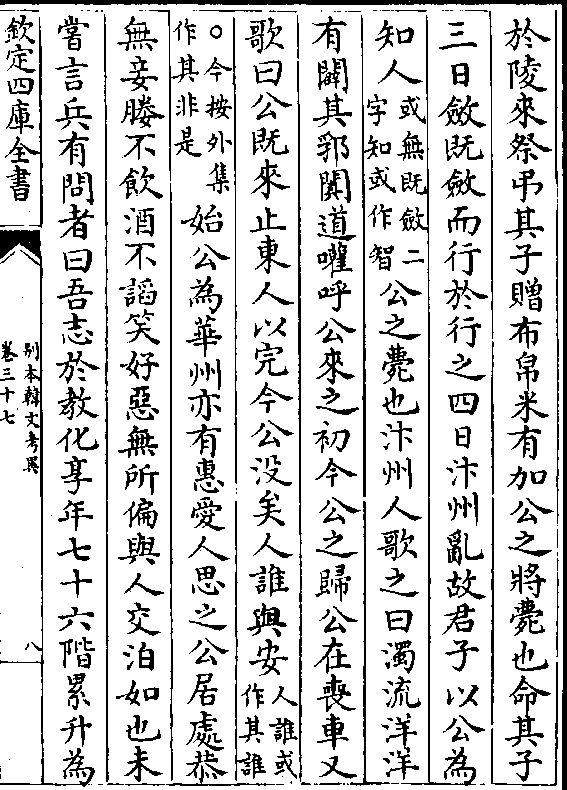 於陵來祭弔其子贈布帛米有加公之將薨也命其子
三日斂既斂而行於行之四日汴州亂故君子以公為
知人或無既斂二字知或作智公之薨也汴州人歌之曰濁流洋洋
有闢其郛闐道嚾呼公來之初今公之歸公在喪車又
歌曰公既來止東人以完今公没矣人誰與安人誰或作其誰
○今按外集作其非是始公為華州亦有惠愛人思之公居處恭
無妾媵不飲酒不謟笑好惡無所偏與人交泊如也未
嘗言兵有問者曰吾志於教化享年七十六階累升為
欽定四庫全書
別本韓文考異
卷三十七
八